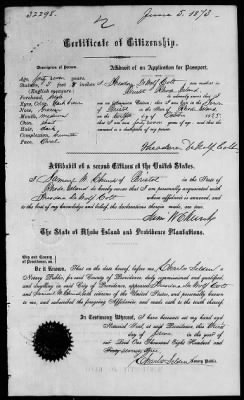 32298.
June 5. 1873
Certificate of Citizenship.
Description of Person.
Affidavit of an Application for Passport.
Age, forty seven years
Stature, 5 feet 8 inches
(English measure)
Forehead,
Eyes, Color,
Nose,
Mouth, medium
Chin, Short
Hair, Dark
Complexion,
Face, Oval
I, Theodora DeWolf Colt resident in
Bristol, Rhode Island
do solemnly swear that I
am an American Citizen; that I was in the Town
of Bristol State of Rhode Island
on the day of October 1825
that I am forty seven years of age; and that the
annexed is a description of my person.
Theodora DeWolf Colt
Affidavit of a second Citizen of the United States.
I, Samuel W. Church of Bristol in the State of
Rhode Island do hereby swear that I am personally acquainted with
Theodora DeWolf Colt whose affidavit is annexed, and to the
best of my knowledge and belief, the declarations therein made, are true.
Sam W Church
The State of Rhode Island and Providence Plantations.
City and County
of Providence, ss.
Be it Known, That on the date hereof, before me Charles Selden a
Notary Public, for said County of Providence, duly commissioned and qualified,
and dwelling in said City of Providence, appeared Theodora DeWolf Colt
and Samuel W. Church, both citizens of the United States, and personally known
to me, and subscribed the foregoing Affidavits, and made oath to the same.
In Testimony Whereof, I have hereunto set my hand and
Notarial Seal, at said Providence, this third
day of June in the year of our
Lord One Thousand Eight Hundred and
Seventy three
Charles Selden Notary Public.